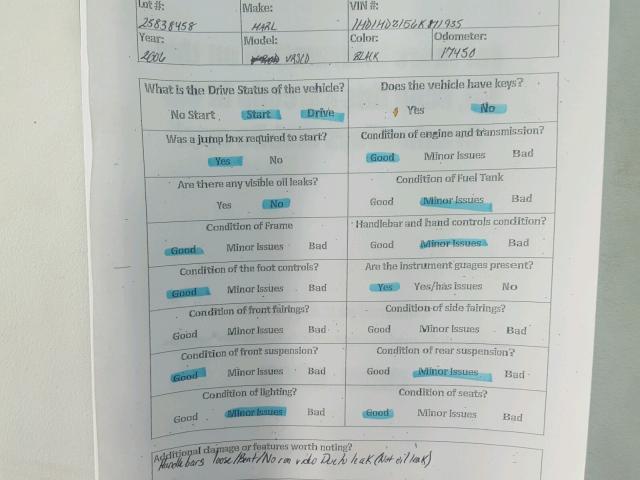 Lot #: Make: VIN #:
25838458 HARL 1HD1HDZ156K811935
Year: Model: Color: Odometer:
2006 VRSCD BLACK 17450
What is the Drive Status of the vehicle? Does the vehicle have keys?
No Start Start Drive Yes No
Was a jump box required to start? Condition of engine and transmission?
Yes No Good Minor Issues Bad
Are there any visible oil leaks? Condition of Fuel Tank
Yes No Good Minor Issues Bad
Condition of Frame Handlebar and hand controls condition?
Good Minor Issues Bad Good Minor Issues Bad
Condition of the foot controls? Are the instrument guages present?
Good Minor Issues Bad Yes Yes/has issues No
Condition of front fairings? Condition of side fairings?
Good Minor Issues Bad Good Minor Issues Bad
Condition of front suspension? Condition of rear suspension?
Good Minor Issues Bad Good Minor Issues Bad
Condition of lighting? Condition of seats?
Good Minor Issues Bad Good Minor Issues Bad
Additional damage or features worth noting?
Handlebars loose/Bent/No run video Due to leak (Not oil leak)